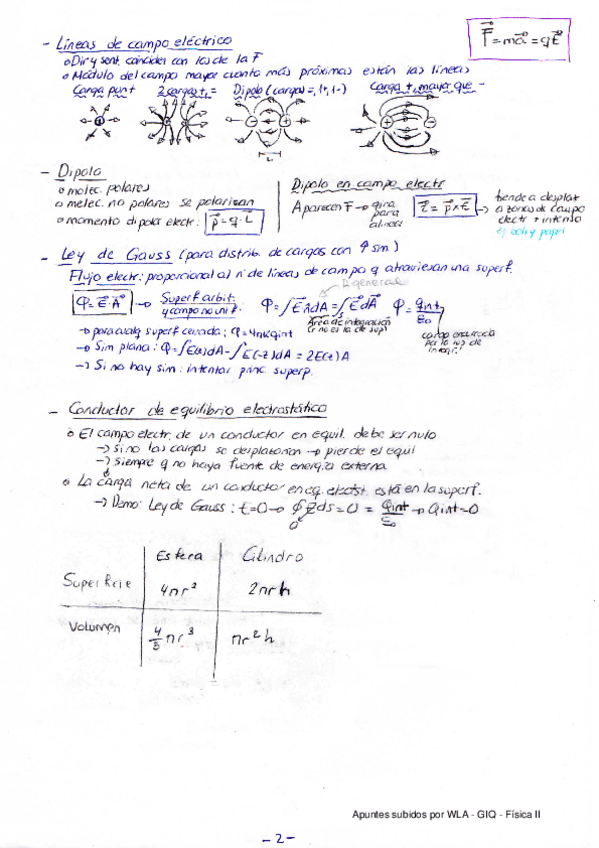 - Líneas de campo eléctrico
F = ma = qE
o Dir y sent. coinciden con los de la F
o Módulo del campo mayor cuanto más próximas están las líneas
Carga punt 2 cargas +, = Dipolo (cargas =, 1+, 1-) Carga +, mayor que -
L
- Dipolo
o molec. polares
o molec. no polares se polarizan
o momento dipolar electr: p = q·L
Dipolo en campo electr
Aparecen F → gira para alinear
τ = p × E → tiende a desplat a zonas de campo electr + intenso
- Ley de Gauss (para distrib. de cargas con ↑ sim.)
Flujo electr: proporcional al nº de líneas de campo q atraviesan una superf.
general
Φ = E·A → Superf arbit. y campo no unif. Φ = ∫E n dA = ∫E dA Φ = qint/ε0
Área de integración
→ para cualq superf cerrada: Φ = 4πkqint
→ Sim plana: Φ = ∫E(z)dA - ∫E(-z)dA = 2E(z)A
→ Si no hay sim: intentar princ superp.
- Conductor de equilibrio electrostático
o El campo electr. de un conductor en equil. debe ser nulo
→ Si no las cargas se desplazarían → pierde el equil
→ Siempre q no haya fuente de energía externa
o La carga neta de un conductor en eq. electrost. está en la superf.
→ Demo: Ley de Gauss: E=0 → ∮E ds = 0 = qint/ε0 → qint=0
Esfera Cilindro
Superficie 4πr² 2πrh
Volumen 4/3 πr³ πr²h
Apuntes subidos por WLA - GIQ - Física II
- 2 -